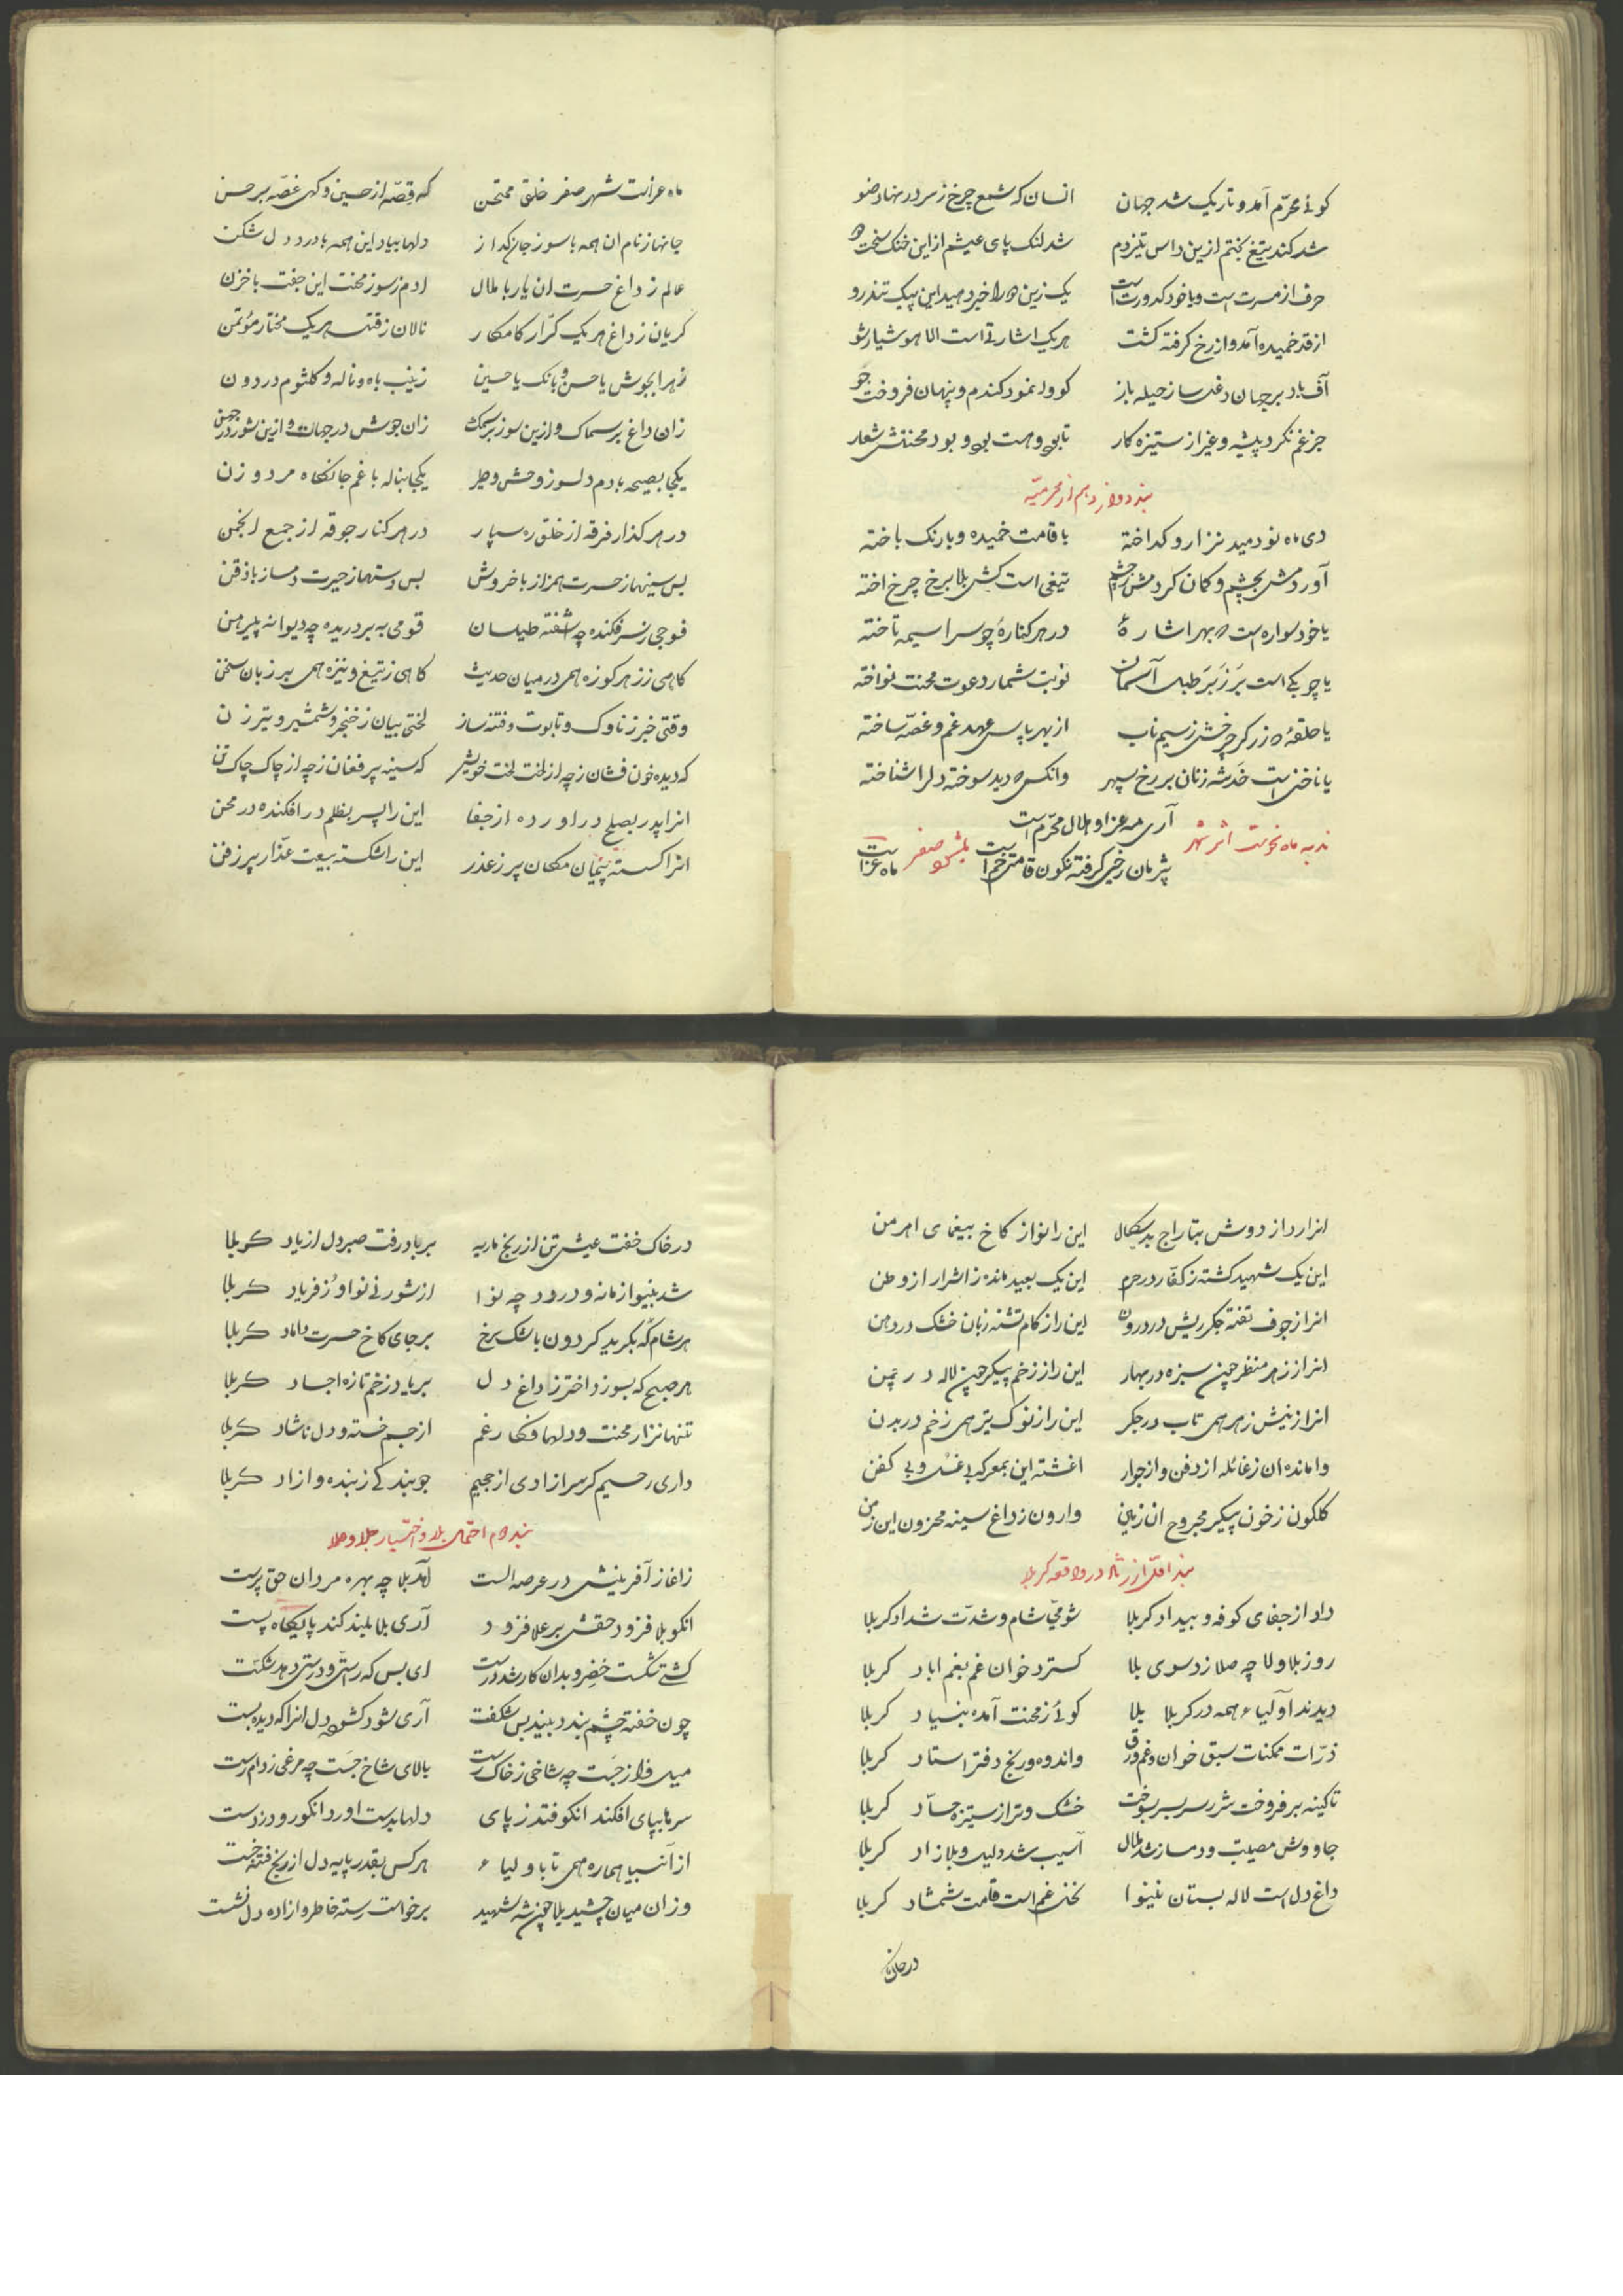 کوئی محرّم آمد و تاریک شد جهان انسان که شمع چرخ ز سر در نهاد ضو
شد کند تیغ بختم ازین داس تیزدم شد لنک پای عیشم از این خنک سخت
حرف از مسرت است و با خود کدورت است یک زین را خبر دهید این پیک تندرو
از قد خمیده آمد و از رخ کرفته کشت هر یک اشارتی است الا هوشیار شو
اُف باد بر جهان دغل ساز حیله باز کو وا نمود کندم و پنهان فروخت جو
جز غم نکرد پیشه و غیر از ستیزه کار تا بود و هست بود محنتش شعار
بند دوازدهم از محرمیّه
دی ماه نو دمید نزار و کداخته با قامت خمیده و با رنک باخته
آورد مش بچشم و کمان کردمش تیغی است کش بلا برخ چرخ اخته
یا خود سواره است بهر اشارهٔ در هر کنارهٔ چو سراسیمه تاخته
یا چوبکی است بَر زَبَر طبل آسمان نوبت شمار دعوت محنت نواخته
یا حلقهٔ زر کر چرخش ز سیم ناب از بهر پاس عهد غم و غصّه ساخته
یا ناخنی است خَدشه زنان بر رخ سپهر وانکس دید سوخته دل را شناخته
آری مه عزا و هلال محرّم است
پژمان رخی کرفته نکون قامتی خم است
ندبه ماه نحوست اثر شهر صفر
ماه عزاست
ماه عزاست شهر صفر خلق ممتحن که قصّه از حسین و کهی غصّه بر حسن
جانها ز نام ان همه با سوز جان کداز دلها بیاد این همه با درد دل شکن
عالم ز داغ حسرت ان یار با ملال ادم ز سوز محنت این جفت با حزن
کریان ز داغ هر یک کرّار کامکار نالان ز رقت هر یک مختار مؤتمن
زهرا بجوش یا حسن و بانک یا حسین زینب باه و ناله و کلثوم در دون
زان داغ بر سماک و ازین سوز بر سمک زان جوش در جهان و ازین شور در
یکجا بصیحه با دم دلسوز وحش و طیر یکجا بناله با غم جانکاه مرد و زن
در هر کذار فرقه از خلق ره سپار در هر کنار جوقه از جمع انجمن
بس سینها ز حسرت همراز با خروش بس دستها ز حیرت دمساز با ذقن
فوجی ز سر فکنده چه اشفته طیلسان قومی به بر دریده چه دیوانه پیرهن
کاهی ز زهر کوزه همی در میان حدیث کاهی ز تیغ و نیزه همی بر زبان سخن
وقتی خبر ز ناوک و تابوت و فتنه ساز لختی بیان ز خنجر و شمشیر و تیر زن
که دیده خون فشان ز چه از لخت لخت خویش که سینه پر فغان ز چه از چاک چاک تن
انرا پدر بصلح در اورده از جفا این را پسر بظلم در افکنده در محن
انرا کسسته پیمان مکّان پر ز غدر این را شکسته بیعت غدّار پر ز فن
انرا ردا ز دوش بتاراج بدسکال این را نوا ز کاخ بیغمای اهرمن
این یک شهید کشته ز کفّار در حرم این یک بعید مانده ز اشرار از وطن
انرا ز جوف تفته جکر ریش در درون این را ز کام تشنه زبان خشک در دهن
انرا ز زهر منظر چون سبزه در بهار این را ز زخم پیکر چون لاله در چمن
انرا ز نیش زهر همی تاب در جکر این را ز نوک تیر همی زخم در بدن
وا مانده ان ز غائله از دفن و از جوار اغشته این بمعرکه بی غسل و بی کفن
کلکون ز خون پیکر مجروح ان زمین وارون ز داغ سینه محزون این زمن
بند اوّل از رثا در واقعه کربلا
داد از جفای کوفه و بیداد کربلا شومیّ شام و شدّت شداد کربلا
روز بلا ولا چه صلا زد سوی بلا کسترد خوان غم بغم اباد کربلا
دیدند اولیاء همه در کربلا بلا کوئی ز محنت آمده بنیاد کربلا
ذرّات ممکنات سبق خوان و غم ورق و اندوه و رنج دفتر استاد کربلا
تا کینه بر فروخت شرر سر بسر بسوخت خشک و تر از ستیزه حسّاد کربلا
جاووش مصیبت و دمساز شد ملال آسیب شد دلیل و بلا زاد کربلا
داغ دل است لاله بستان نینوا نخل غم است قامت شمشاد کربلا
در خاک
در خاک خفت عیش تن از رنج ماریه بر باد رفت صبر دل از یاد کربلا
شد بینوا زمانه و در رود چه نوا از شور نی نوا و ز فریاد کربلا
هر شام که بکرید کردون باشک برخ بر جای کاخ حسرت داماد کربلا
هر صبح که بسوزد اختر ز داغ دل بر یاد زخم تازه اجساد کربلا
تنها نزار محنت و دلها فکار غم از جسم خسته و دل ناشاد کربلا
داری رحیم کر سر ازادی از جحیم جو بندکی ز بنده و ازاد کربلا
بند دوم احتمال بلا و اختیار جلاء وطن
زاغاز آفرینش در عرصه الست آمد بلا چه بهره مردان حق پرست
انکو بلا فزود حقش بر علا فزود آری بلا بلند کند پایکاه پست
کشتی شکست خضر و بدان کار شد درست ای بس که رستی و درستی دهد شکست
چون خفته چشم بندد بیند بس شکفت آری شود کشوده دل انرا که دیده بست
میل فراز جست چه شاخی ز خاک رست بالای شاخ جَست چه مرغی ز دام رست
سرها بپای افکند انکو فتد ز پای دلها بدست اورد انکو رود ز دست
از انبیا هماره همی تا باولیاء هر کس بقدر پایه دل از رنج فتنه خست
وز ان میان چشید بلا چون شه شهید برخواست رسته خاطر و ازاده دل نشست